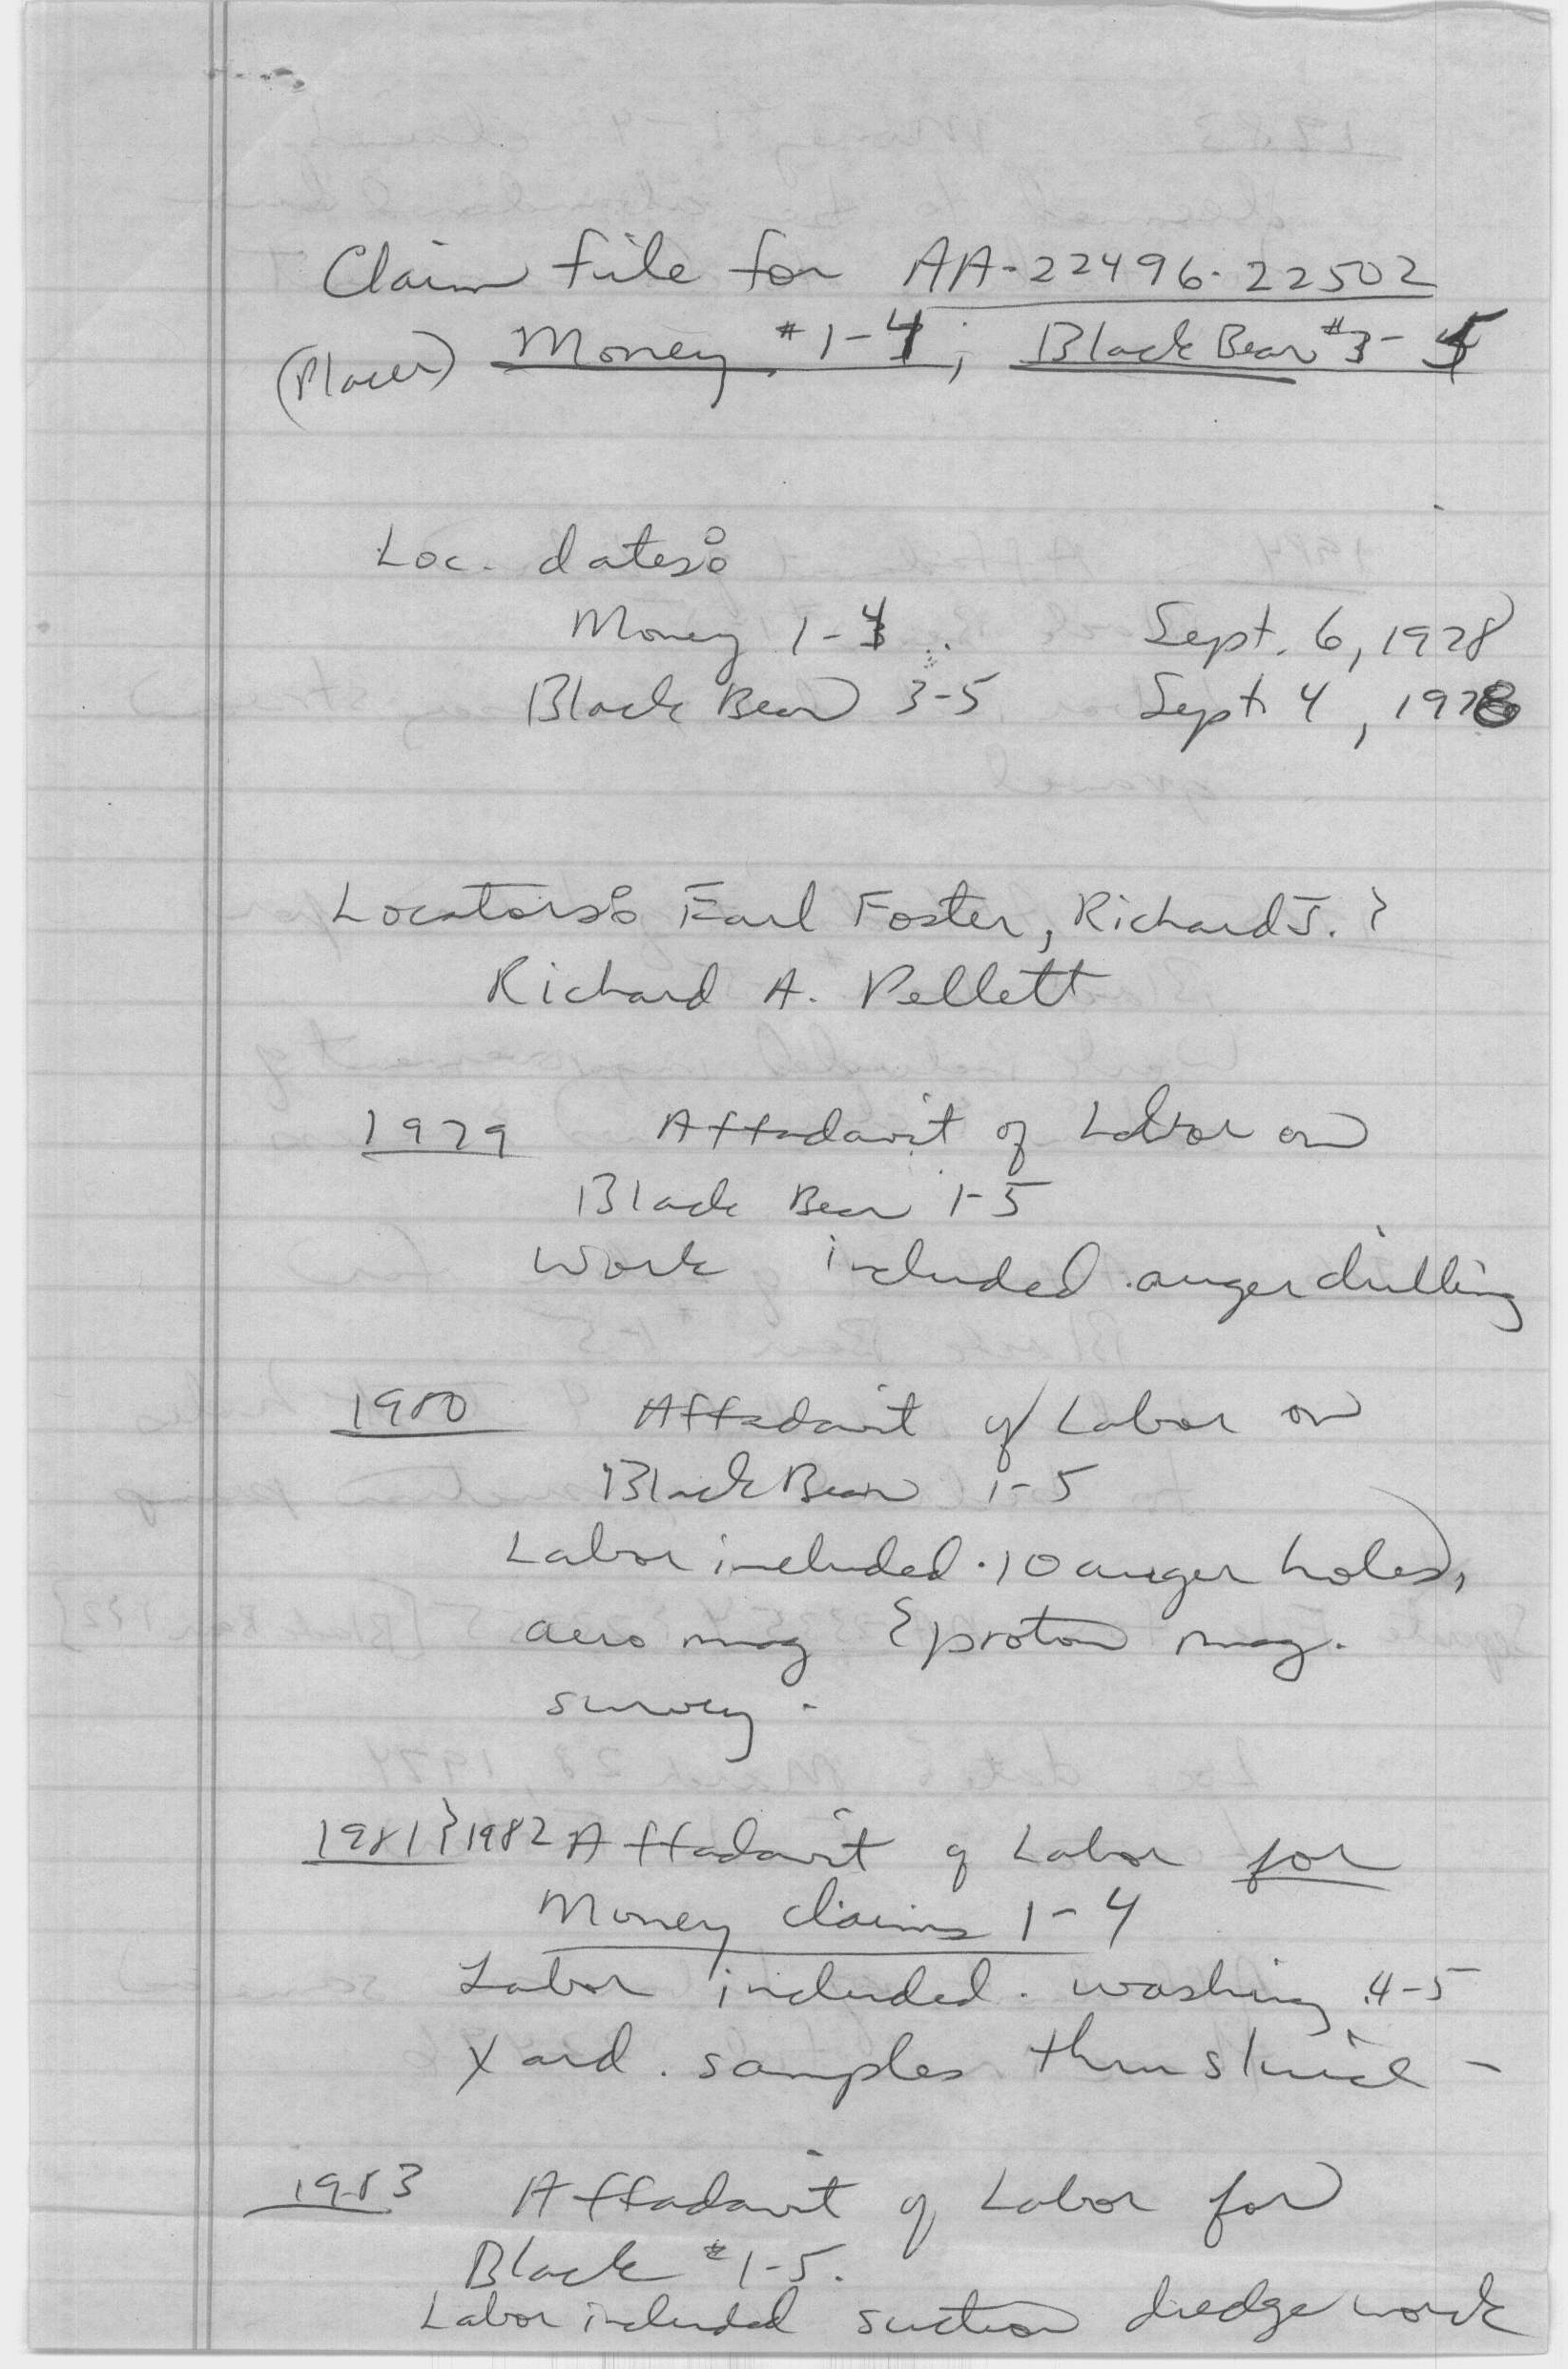 Claim file for AA-22496-22502
(Placer) Money #1-4; Black Bear #3-5
Loc. dates:
Money 1-4 Sept. 6, 1978
Black Bear 3-5 Sept 4, 1978
Locators: Earl Foster, Richard J. &
Richard A. Pellett
1979 Affadavit of Labor on
Black Bear 1-5
Work included auger drilling
1980 Affadavit of Labor on
Black Bear 1-5
Labor included 10 auger holes,
aero mag & proton mag.
survey.
1981 & 1982 Affadavit of Labor for
Money claims 1-4
Labor included washing 4-5
Yard samples thru sluice -
1983 Affadavit of Labor for
Black #1-5.
Labor included suction dredge work